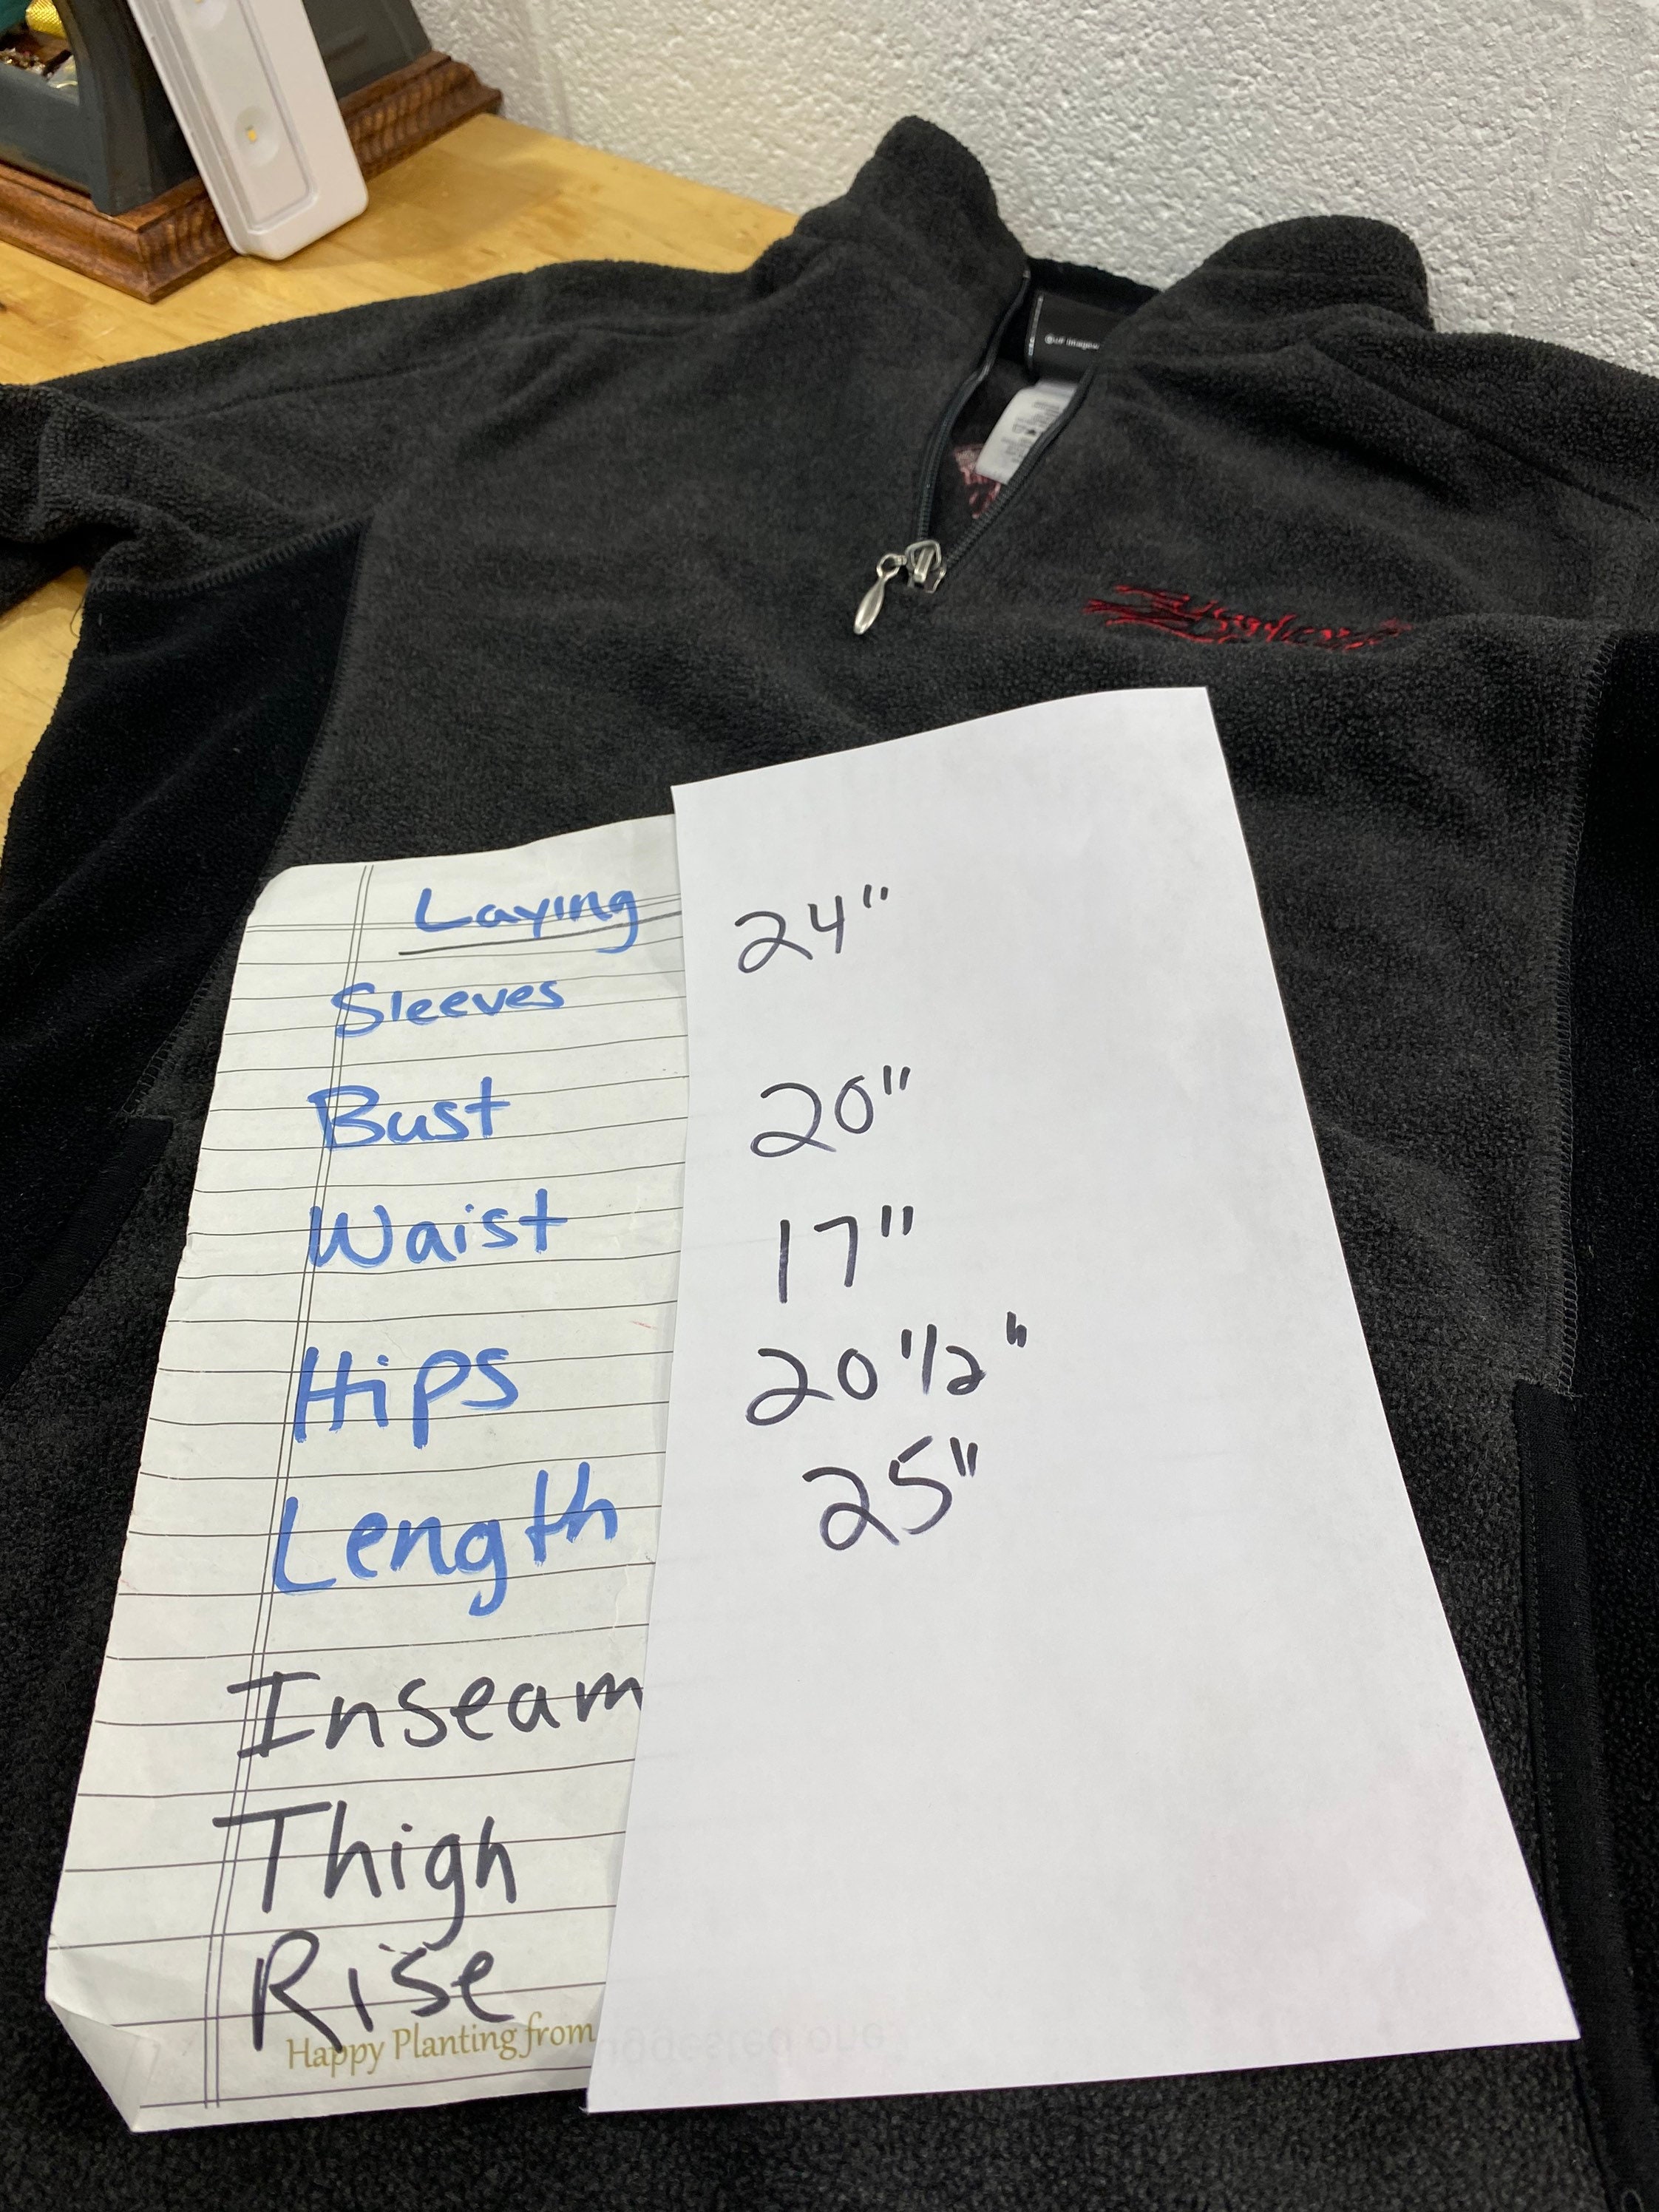 Laying
Sleeves 24"
Bust 20"
Waist 17"
Hips 20 1/2"
Length 25"
Inseam
Thigh
Rise
Happy Planting from